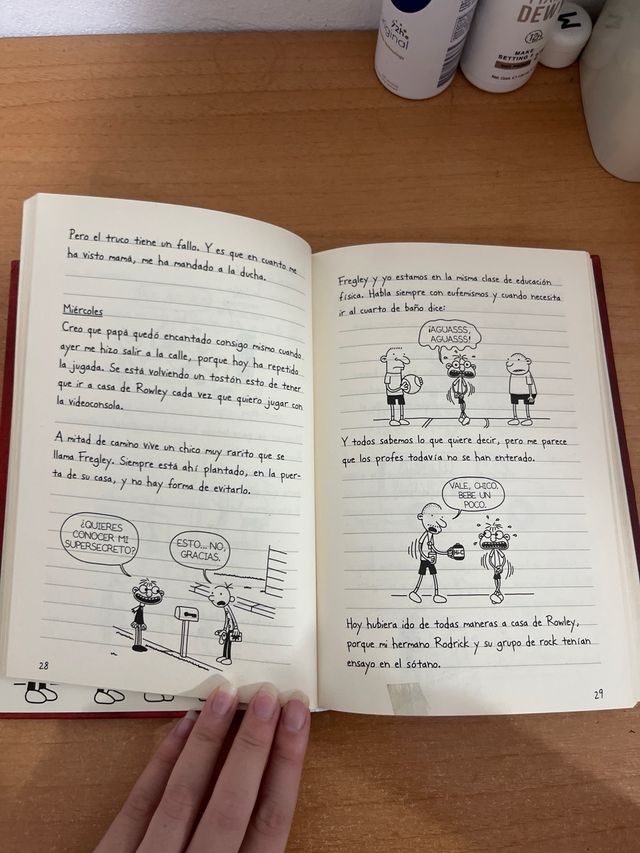 72h
original
DEW
12h
MAKE
SETTING
Pero el truco tiene un fallo. Y es que en cuanto me
ha visto mamá, me ha mandado a la ducha.
Miércoles
Creo que papá quedó encantado consigo mismo cuando
ayer me hizo salir a la calle, porque hoy ha repetido
la jugada. Se está volviendo un tostón esto de tener
que ir a casa de Rowley cada vez que quiero jugar con
la videoconsola.
A mitad de camino vive un chico muy rarito que se
llama Fregley. Siempre está ahí plantado, en la puer-
ta de su casa, y no hay forma de evitarlo.
¿QUIERES
CONOCER MI
SUPERSECRETO?
ESTO... NO,
GRACIAS.
28
Fregley y yo estamos en la misma clase de educación
física. Habla siempre con eufemismos y cuando necesita
ir al cuarto de baño dice:
¡AGUASSS,
AGUASSS!
Y todos sabemos lo que quiere decir, pero me parece
que los profes todavía no se han enterado.
VALE, CHICO.
BEBE UN
POCO.
Hoy hubiera ido de todas maneras a casa de Rowley,
porque mi hermano Rodrick y su grupo de rock tenían
ensayo en el sótano.
29